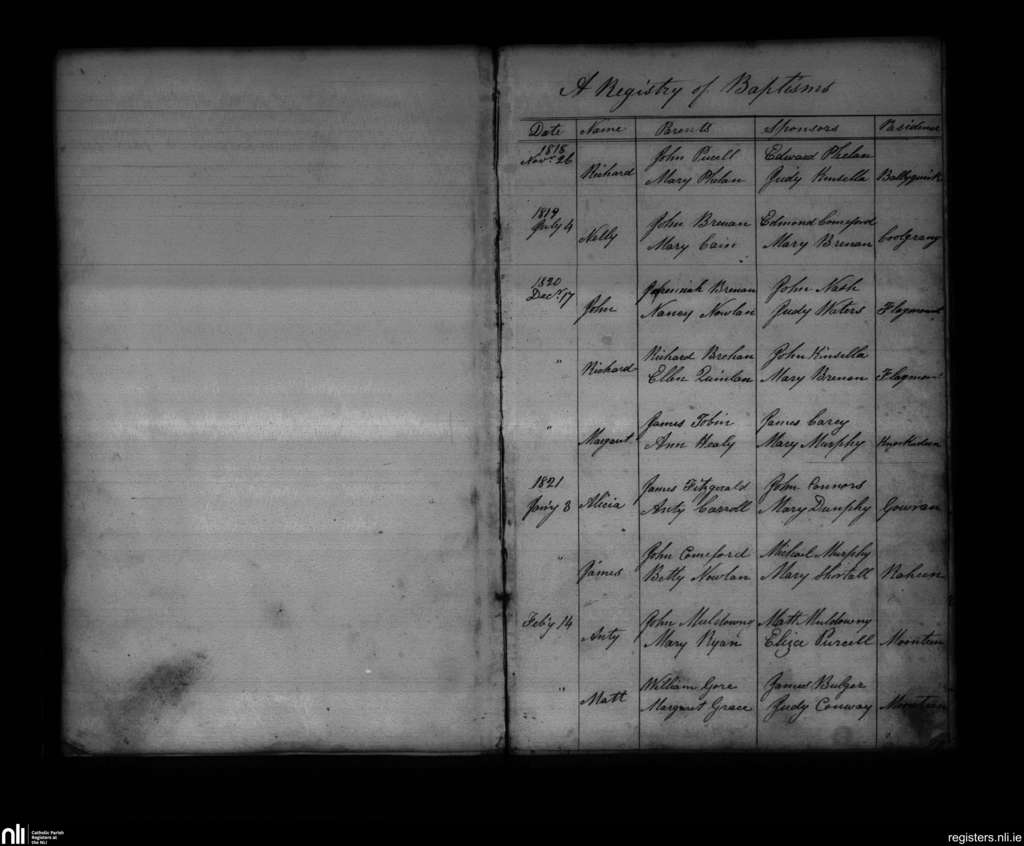 A Registry of Baptisms
Date Name Parents Sponsors Residence
1818
Novr 26 Richard John Pucell Edward Phelan
Mary Phelan Judy Kinsella
1819
July 4 Nelly John Brenan Edmond Comeford
Mary Cain Mary Brenan Coolgrany
1820
Decr 17 John Jeremiah Brenan John Nash
Nancy Nowlan Judy Waters Flagmount
" Richard Richard Brohan John Kinsella
Ellen Quinlan Mary Brenan Flagmount
" Margaret James Tobin James Carey
Ann Healy Mary Murphy
1821
Jan'y 3 Alicia James Fitzgerald John Connors
Anty Carroll Mary Dunphy Gowran
" James John Comeford Michael Murphy
Betty Nowlan Mary Shortall Raheen
Feb'y 14 Anty John Muldowny Matt Muldowny
Mary Ryan Eliza Purcill Moonteen
" Matt William Gore James Bulger
Margaret Grace Judy Conway Moonteen
nli
Catholic Parish
Registers at
the NLI
registers.nli.ie